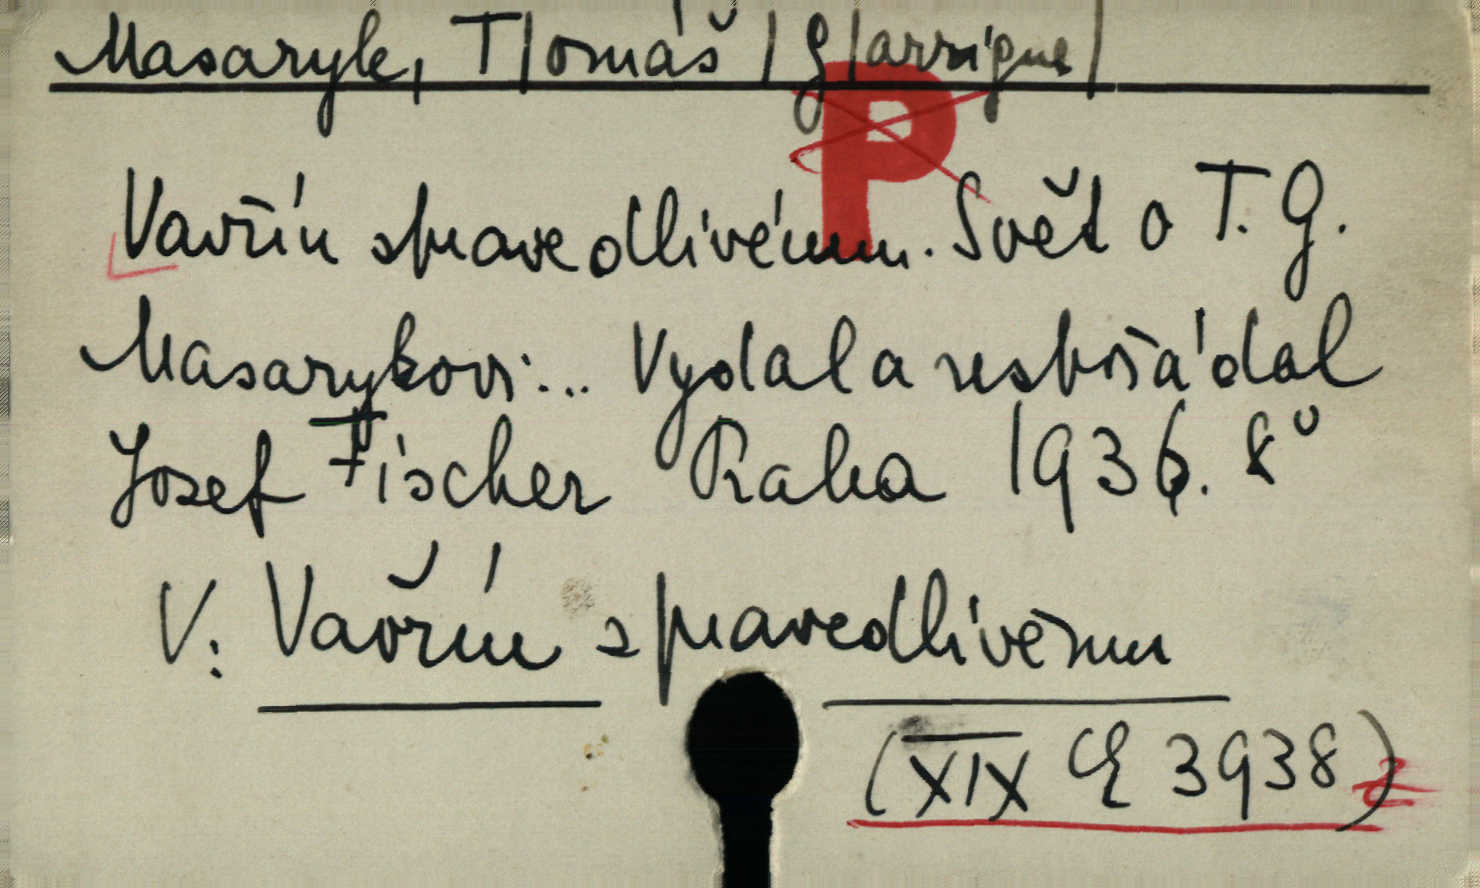 Masaryk, T|omáš| G|arrigue|
P
Vavřín spravedlivému. Svět o T. G.
Masarykovi... Vydal a uspořádal
Josef Fischer Praha 1936. 8°
V: Vavřín spravedlivému
(XIX E 3938)